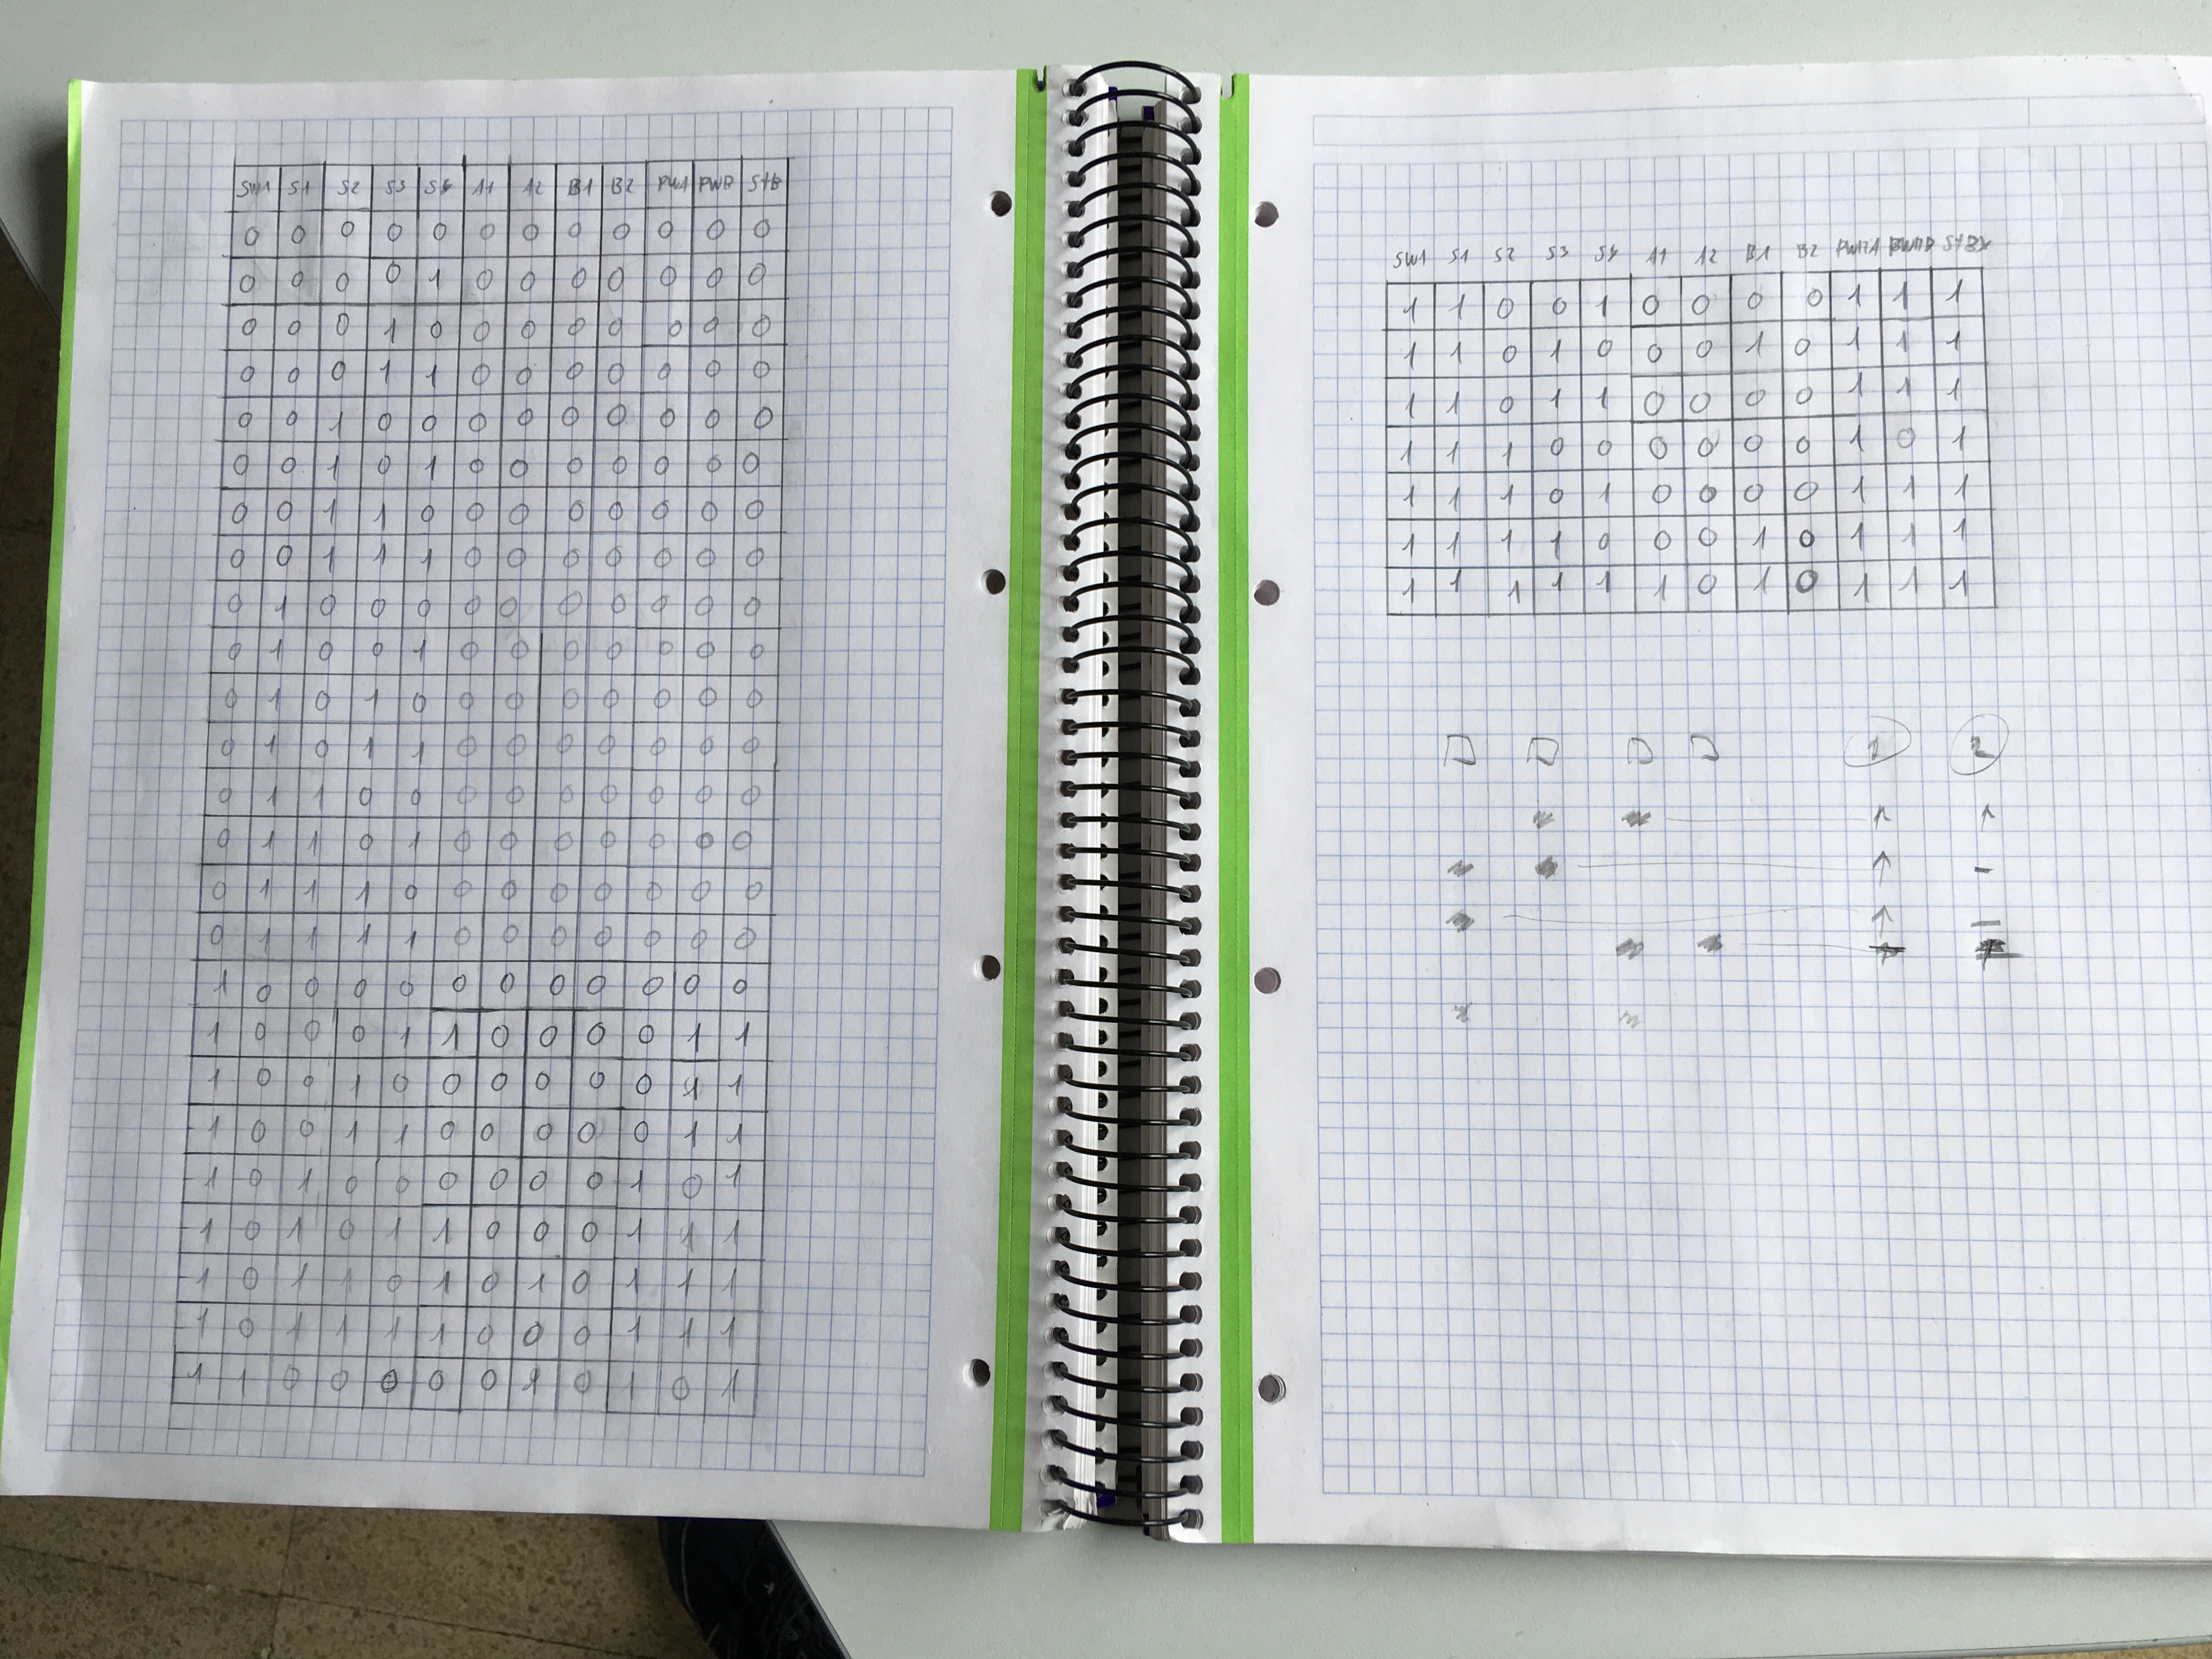 SW1 S1 S2 S3 S4 A1 A2 B1 B2 PWA PWB StB
0 0 0 0 0 0 0 0 0 0 0 0
0 0 0 0 1 0 0 0 0 0 0 0
0 0 0 1 0 0 0 0 0 0 0 0
0 0 0 1 1 0 0 0 0 0 0 0
0 0 1 0 0 0 0 0 0 0 0 0
0 0 1 0 1 0 0 0 0 0 0 0
0 0 1 1 0 0 0 0 0 0 0 0
0 0 1 1 1 0 0 0 0 0 0 0
0 1 0 0 0 0 0 0 0 0 0 0
0 1 0 0 1 0 0 0 0 0 0 0
0 1 0 1 0 0 0 0 0 0 0 0
0 1 0 1 1 0 0 0 0 0 0 0
0 1 1 0 0 0 0 0 0 0 0 0
0 1 1 0 1 0 0 0 0 0 0 0
0 1 1 1 0 0 0 0 0 0 0 0
0 1 1 1 1 0 0 0 0 0 0 0
1 0 0 0 0 0 0 0 0 0 0 0
1 0 0 0 1 1 0 0 0 0 1 1
1 0 0 1 0 0 0 0 0 0 1 1
1 0 0 1 1 0 0 0 0 0 1 1
1 0 1 0 0 0 0 0 0 1 0 1
1 0 1 0 1 1 0 0 0 1 1 1
1 0 1 1 0 1 0 1 0 1 1 1
1 0 1 1 1 1 0 0 0 1 1 1
1 1 0 0 0 0 0 1 0 1 0 1
SW1 S1 S2 S3 S4 A1 A2 B1 B2 PWMA PWMB StBy
1 1 0 0 1 0 0 0 0 1 1 1
1 1 0 1 0 0 0 1 0 1 1 1
1 1 0 1 1 0 0 0 0 1 1 1
1 1 1 0 0 0 0 0 0 1 0 1
1 1 1 0 1 0 0 0 0 1 1 1
1 1 1 1 0 0 0 1 0 1 1 1
1 1 1 1 1 1 0 1 0 1 1 1
1 2
↑ ↑
↑ -
↑ -